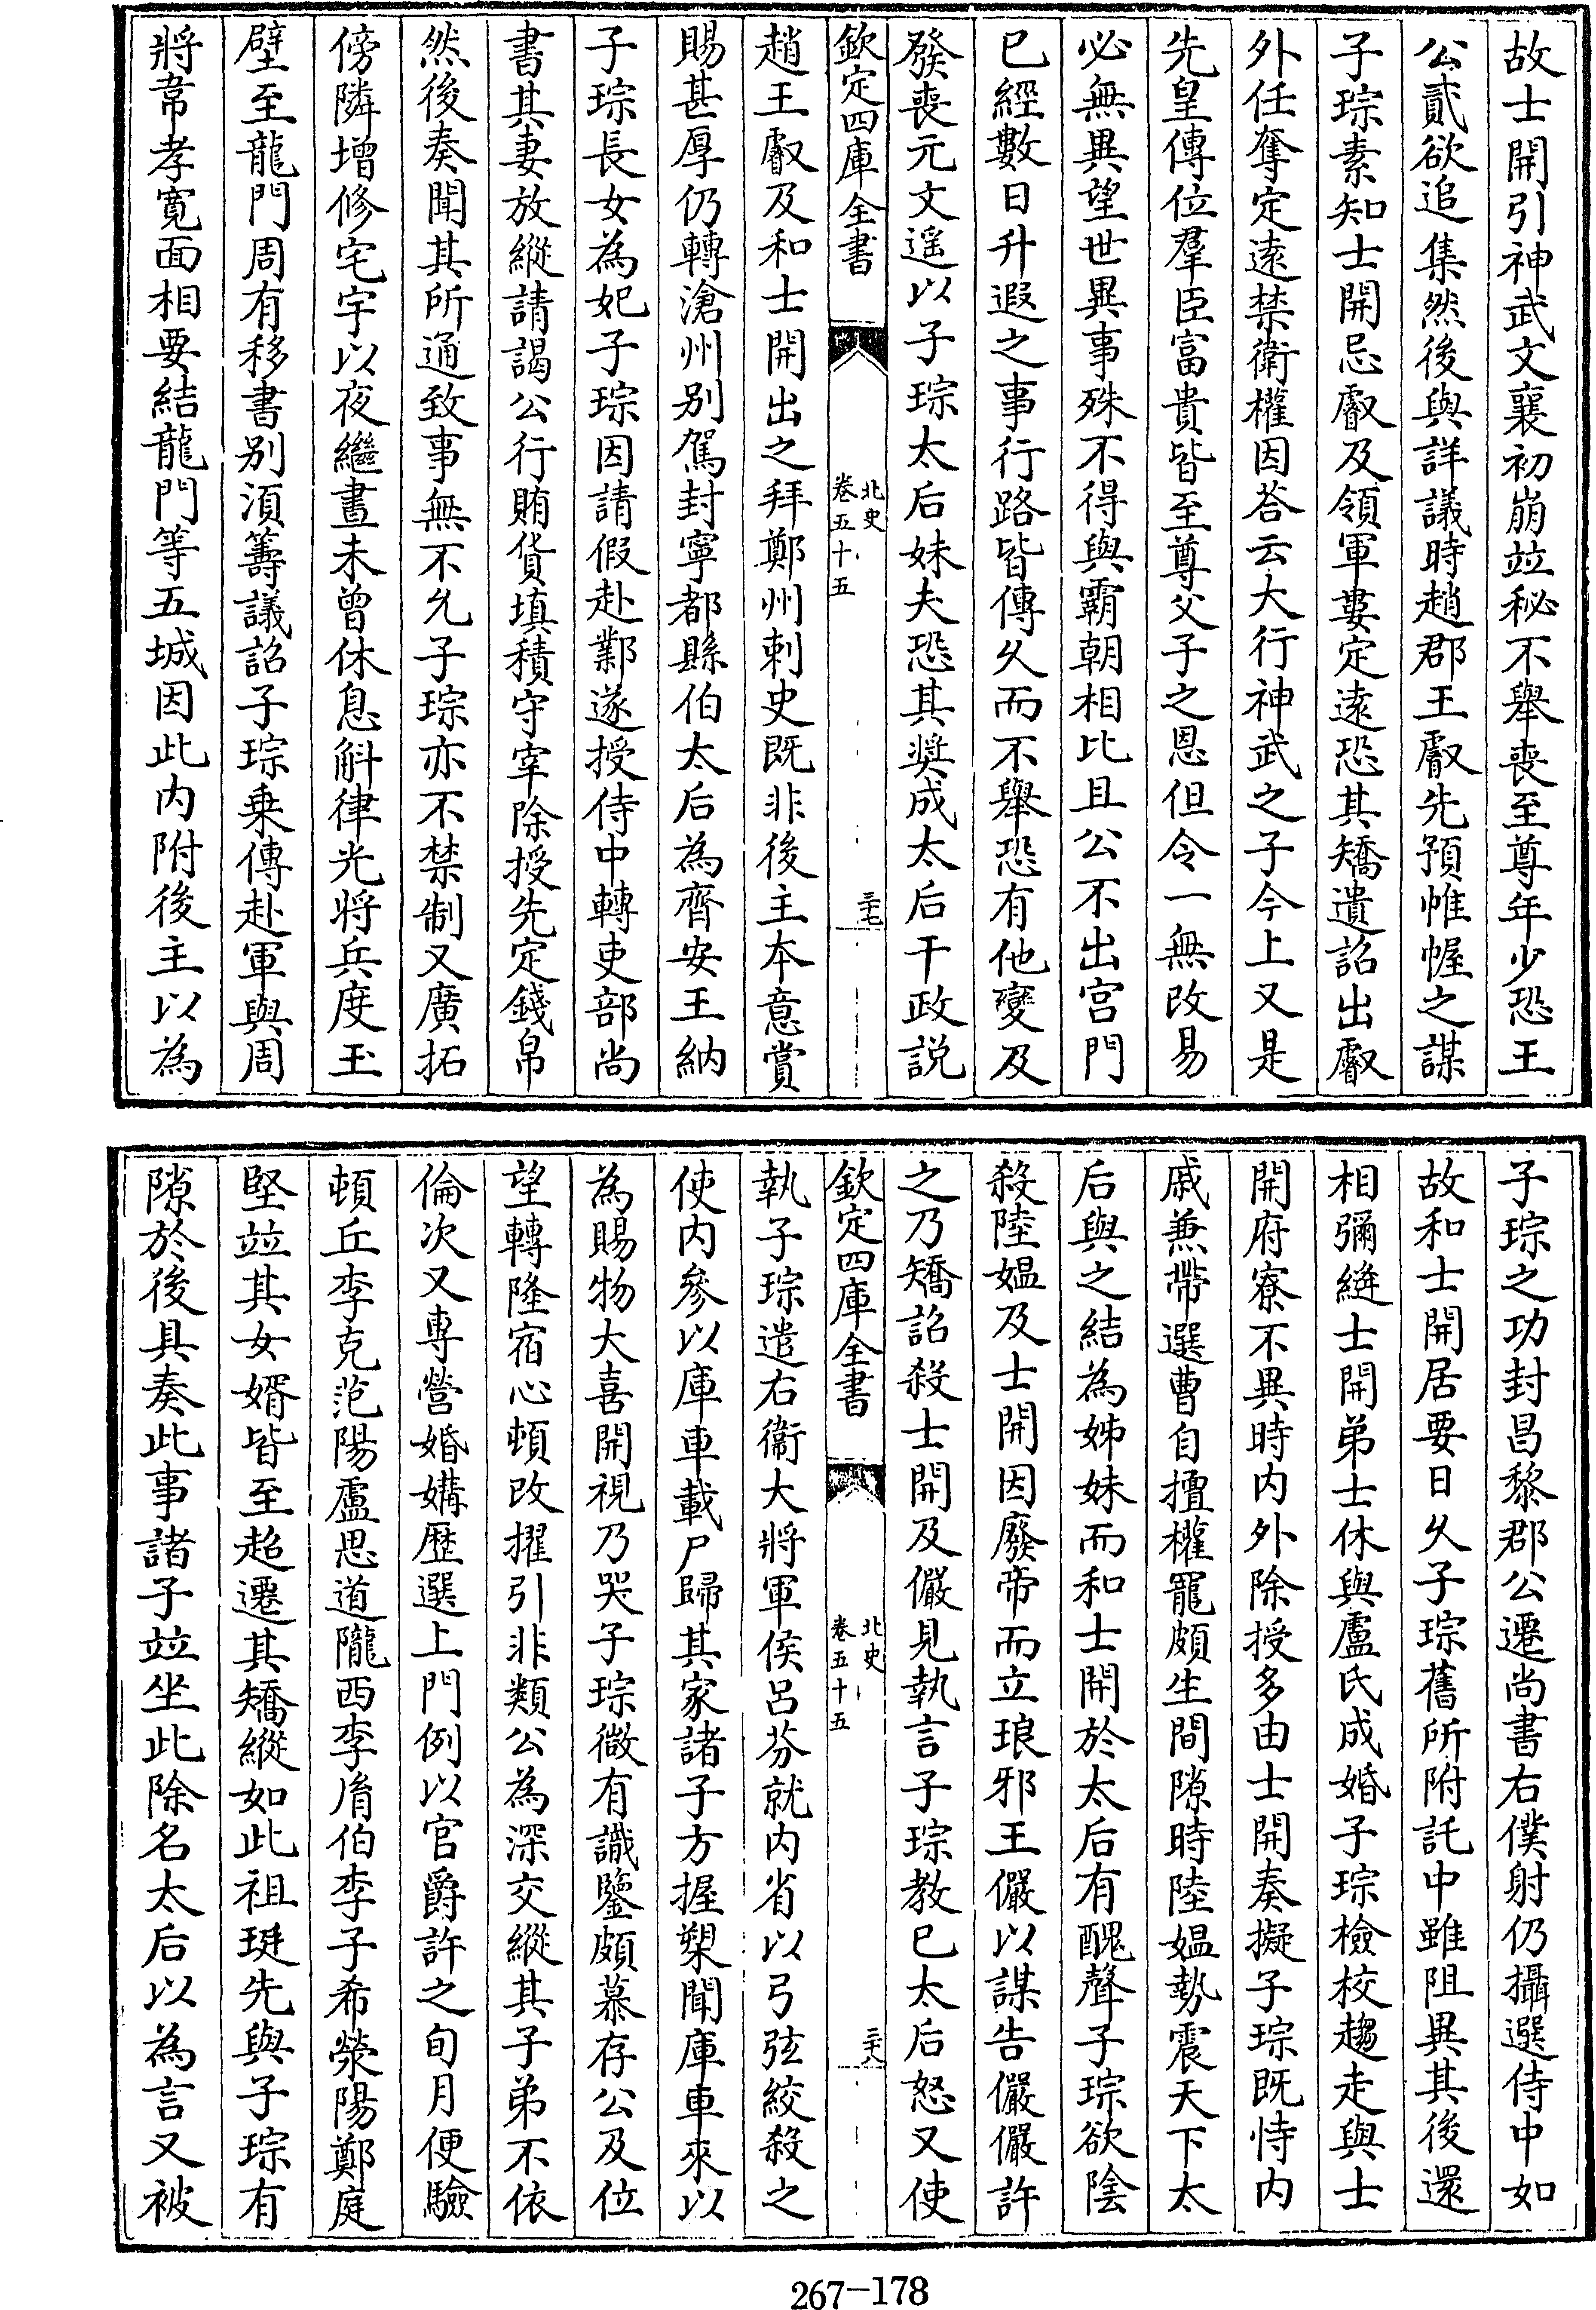 故士開引神武文襄初崩竝秘不舉喪至尊年少恐王
公貳欲追集然後與詳議時趙郡王叡先預帷幄之謀
子琮素知士開忌叡及領軍婁定遠恐其矯遺詔出叡
外任奪定遠禁衛權因荅云大行神武之子今上又是
先皇傳位羣臣富貴皆至尊父子之恩但令一無改易
必無異望世異事殊不得與霸朝相比且公不出宫門
已經數日升遐之事行路皆傳久而不舉恐有他變及
發喪元文遥以子琮太后妹夫恐其奨成太后干政説
欽定四庫全書
北史
卷五十五
三七
趙王叡及和士開出之拜鄭州刺史既非後主本意賞
賜甚厚仍轉滄州别駕封寧都縣伯太后為齊安王納
子琮長女為妃子琮因請假赴鄴遂授侍中轉吏部尚
書其妻放縱請謁公行賄貨填積守宰除授先定錢帛
然後奏聞其所通致事無不允子琮亦不禁制又廣拓
傍隣增修宅宇以夜繼晝未曾休息斛律光將兵度玉
壁至龍門周有移書别湏籌議詔子琮乗傳赴軍與周
將韋孝寛面相要結龍門等五城因此内附後主以為
子琮之功封昌黎郡公遷尚書右僕射仍攝選侍中如
故和士開居要日久子琮舊所附託中雖阻異其後還
相彌縫士開弟士休與盧氏成婚子琮檢校趨走與士
開府寮不異時内外除授多由士開奏擬子琮既恃内
戚兼帶選曹自擅權寵頗生間隙時陸媪勢震天下太
后與之結為姊妹而和士開於太后有醜聲子琮欲陰
殺陸媪及士開因廢帝而立琅邪王儼以謀告儼儼許
之乃矯詔殺士開及儼見執言子琮教已太后怒又使
欽定四庫全書
北史
卷五十五
三八
執子琮遣右衞大將軍侯吕芬就内省以弓弦絞殺之
使内參以庫車載尸歸其家諸子方握槊聞庫車來以
為賜物大喜開視乃哭子琮微有識鑒頗慕存公及位
望轉隆宿心頓改擢引非類公為深交縱其子弟不依
倫次又專營婚媾歴選上門例以官爵許之旬月便驗
頓丘李克范陽盧思道隴西李胤伯李子希滎陽鄭庭
堅竝其女婿皆至超遷其矯縱如此祖珽先與子琮有
隙於後具奏此事諸子竝坐此除名太后以為言又被
267-178